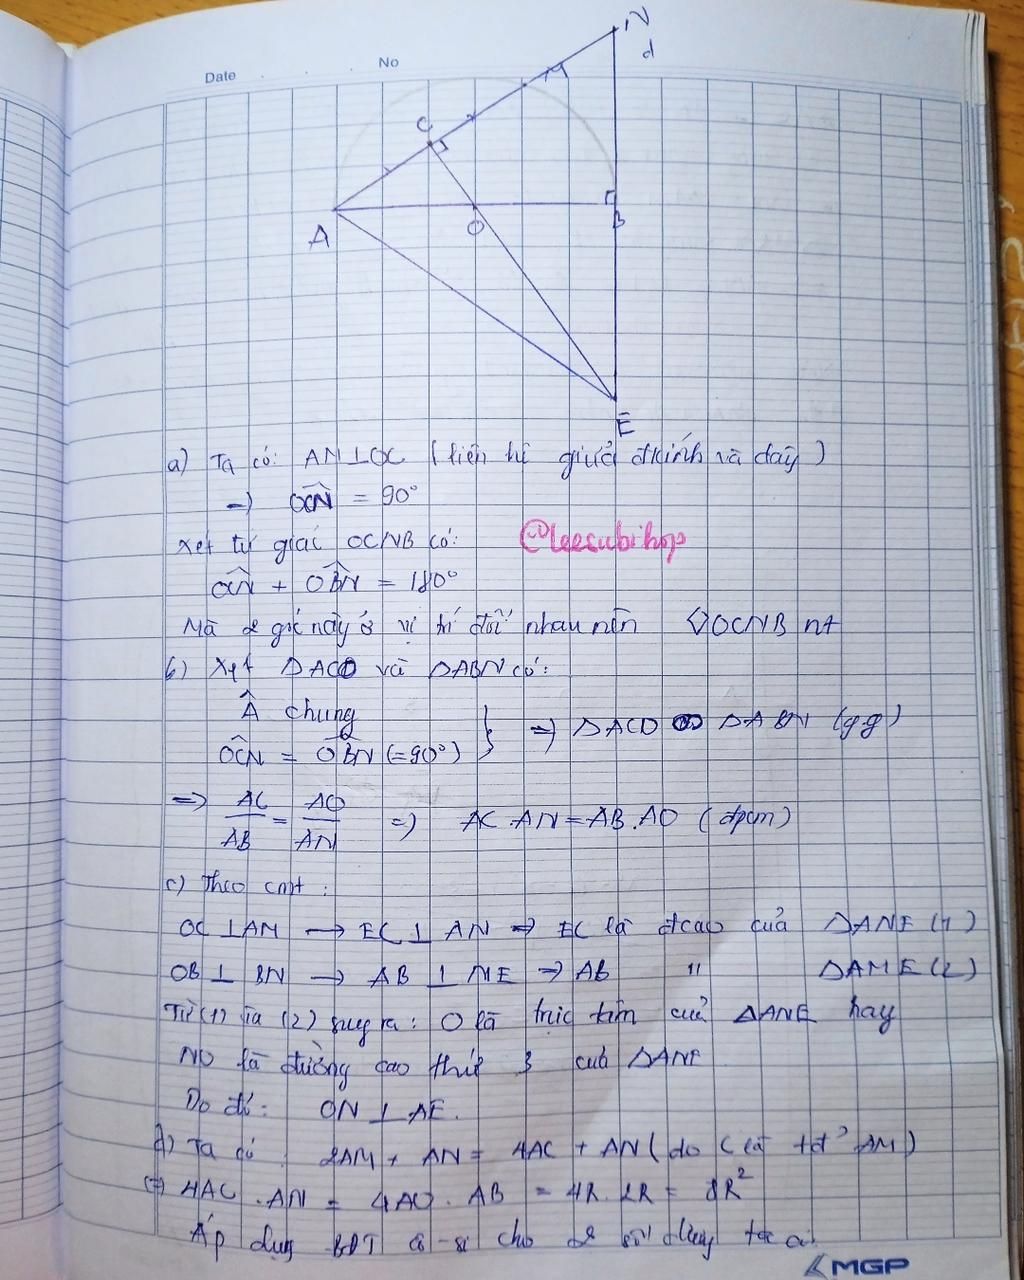 Date No
N
d
M
C
A
O
B
E
a) Ta có: AN⊥OC (liên hệ giữa đkính và dây)
=) OĈN = 90°
Xét tứ giác OCNB có:
@leesubihop
OĈN + OB̂N = 180°
Mà 2 góc này ở vị trí đối nhau nên ◊OCNB nt
b) Xét ΔACO và ΔABN có:
Â chung
OĈN = OB̂N (=90°) } => ΔACO ∽ ΔABN (g.g)
=> AC/AB = AO/AN => AC.AN=AB.AO (đpcm)
c) Theo cmt:
OC⊥AN → EC⊥AN => EC là đcao của ΔANE (1)
OB⊥BN → AB⊥NE => AB " ΔANE (2)
Từ (1) và (2) suy ra: O là trực tâm của ΔANE hay
NO là đường cao thứ 3 của ΔANE
Do đó: ON⊥AE.
d) Ta có: 2AM + AN = 4AC + AN (do C là tđ AM)
4AC.AN = 4AO.AB = 4R.2R = 8R²
Áp dụng BĐT cô-si cho 2 số dương ta có:
MGP